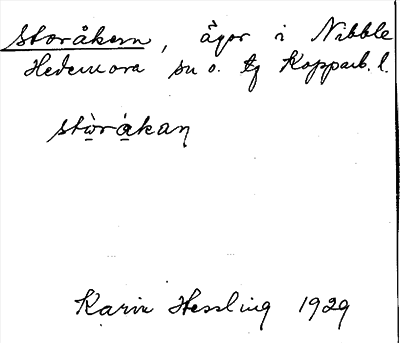 Storåkern, ägor i Nibble
Hedemora sn o. tg Kopparb. l.
stò̱rá̱kaɳ
Karin Hessling 1929